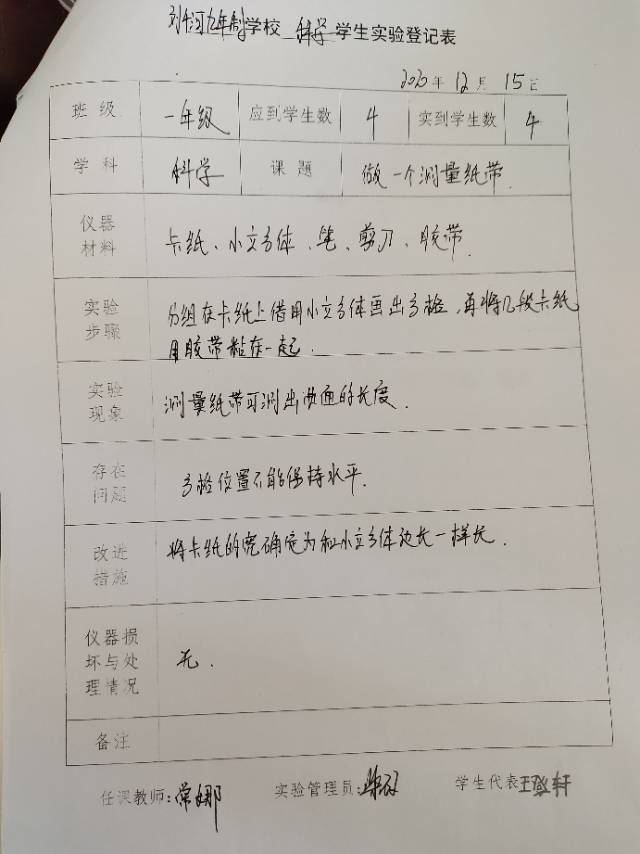 刘河九年制学校 科学 学生实验登记表
2020年 12月 15日
班级 一年级 应到学生数 4 实到学生数 4
学科 科学 课题 做一个测量纸带.
仪器材料 卡纸、小立方体、笔、剪刀、胶带.
实验步骤 分组在卡纸上借用小立方体画出方格,再将几段卡纸
用胶带粘在一起.
实验现象 测量纸带可测出曲面的长度.
存在问题 方格位置不能保持水平.
改进措施 将卡纸的宽确定为和小立方体边长一样长.
仪器损坏与处理情况 无.
备注
任课教师:常娜 实验管理员: 学生代表